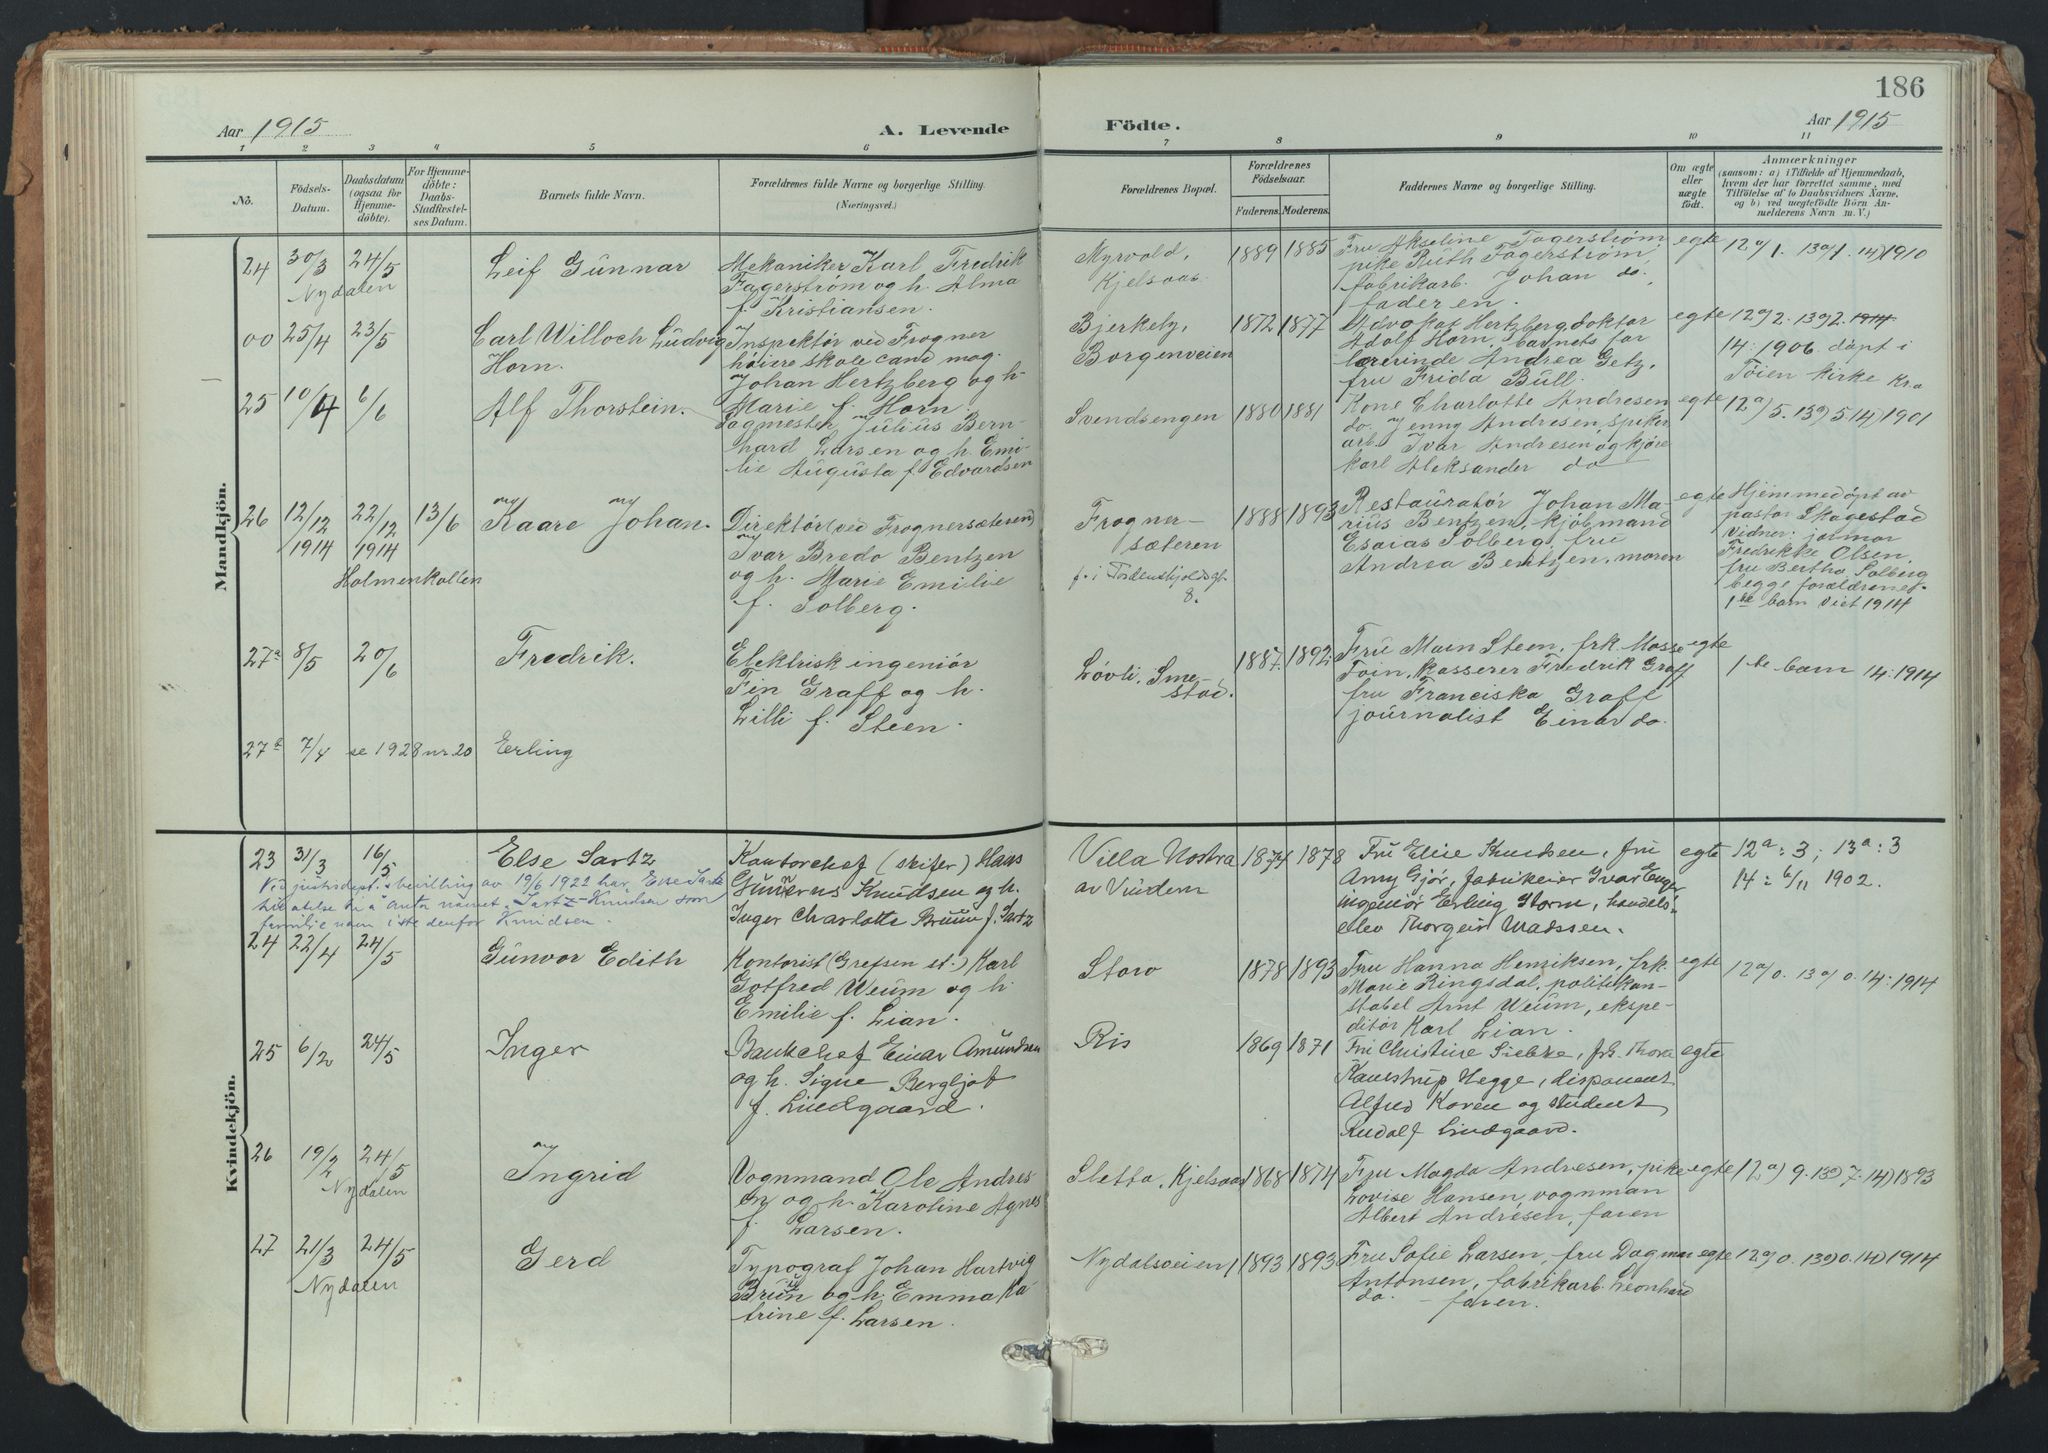 186
Aar 1915
A. Levende
Födte.
Aar 1915
1 2 3 4 5 6 7 8 9 10 11
No.
Födsels-
Datum.
Daabsdatum
(ogsaa for
Hjemme-
döbte).
For Hjemme-
döbte:
Daabs-
Stadfæstel-
ses Datum.
Barnets fulde Navn.
Forældrenes fulde Navne og borgerlige Stilling.
(Næringsvei.)
Forældrenes Bopæl.
Forældrenes
Födselsaar.
Faderens. Moderens.
Faddernes Navne og borgerlige Stilling.
Om ægte
eller
uægte
födt.
Anmærkninger
(saasom: a) i Tilfælde af Hjemmedaab,
hvem der har forrettet samme, med
Tilföielse af to Daabsvidners Navne.
og b) ved uægtefödte Börn An-
melderens Navn m. V.)
Mandkjön.
24 30/3 24/5
Nydalen
Leif Gunnar
Mekaniker Karl Fredrik
Fagerstrøm og h. Alma
f. Kristiansen.
Myrvold,
Kjelsaas
1889 1885
Fru Akseline Fagerstrøm
pike Ruth Fagerstrøm,
fabrikarb. Johan do,
faderen.
egte
12a) 1. 13a) 1. 14) 1910
00 25/4 23/5
Carl Willoch Ludvig
Horn.
Inspektør ved Frogner
høiere skole cand mag.
Johan Hertzberg og h.
Marie f. Horn.
Bjerkely,
Borgenveien
1872 1877
Advokat Hertzberg, doktor
Adolf Horn, barnets far
lærerinde Andrea Getz,
fru Frida Bull.
egte
12a) 2. 13a) 2. 1914
14: 1906. døpt i
Tøien kirke Kra
25 10/4 6/6
Alf Thorstein.
Sagmester Julius Bern-
hard Larsen og h. Emi-
lie Augusta f. Edvardsen
Svendsengen
1880 1881
Kone Charlotte Andresen
do. Jenny Andresen, spiker
arb. Ivar Andresen og kjøre
karl Aleksander do
egte
12a) 5. 13a) 5. 14) 1901
26 12/12 1914 22/12 1914 13/6
Holmenkollen
Kaare Johan.
Direktør (ved Frognersæteren)
Ivar Bredo Bentzen
og h. Marie Emilie
f. Solberg.
Frogner-
sæteren
f. i Tordenskjoldsgt.
8.
1888 1893
Restauratør Johan Ma-
rius Bentzen, kjøbmand
Esaias Solberg, fru
Andrea Bentzen, moren
egte
Hjemmedøpt av
pastor Skagestad
Vidner: jomfr
Fredrikke Olsen,
fru Bertha Solberg
begge forældrenes
1ste barn viet 1914
27a 8/5 20/6
Fredrik.
Elektrisk ingeniør
Fin Graff og h.
Lilli f. Steen.
Løvli, Sme-
stad.
1887 1892
Fru Steen, frk. Mosse
kasserer Fredrik Graff
fru Franciska Graff
journalist Einar do.
egte
1ste barn 14: 1914
27a 7/4 se 1928 nr. 20 Erling
Kvindekjön.
23 31/3 16/5
Else Sartz
Ved justisdept.s bevilling av 19/6 1922 har Else Sartz
tilladelse til å anta navnet Sartz-Knudsen som
familienavn istedenfor Knudsen.
Kontorchef (skifer) Hans
Gunnerus Knudsen og h.
Inger Charlotte Bruun f. Sartz
Villa Nostra
av Vindern
1874 1878
Fru Elise Knudsen, fru
Amy Gjør, fabrikeier Ivar Enger
ingeniør Erling Storm, handels-
elev Thorgeir Madssen.
egte
12a: 3; 13a: 3
14: 6/11 1902.
24 22/4 24/5
Gunvor Edith
Kontorist (Grefsen st.) Karl
Gotfred Weum og h.
Emilie f. Lian.
Storo
1878 1893
Fru Hanna Henriksen, frk.
Marie Ringsdal, politikon-
stabel Arnt Weum, ekspe-
ditør Karl Lian.
egte
12a) 0. 13a) 0. 14: 1914
25 6/2 24/5
Inger
Bankchef Einar Amundsen
og h. Signe Bergljot
f. Lindgaard.
Ris
1869 1871
Fru Christine Siebke, frk. Thora
Kanestrup Hegge, disponent
Alfred Koren og student
Rudolf Lindgaard.
egte
26 19/2 24/5
Nydalen
Ingrid
Vognmand Ole Andres
en og h. Karoline Agnes
f. Larsen.
Sletta, Kjelsaas
1868 1874
Fru Magda Andresen, pike
Lovise Hansen, vognman
Albert Andresen, faren
egte
12a) 9. 13a) 7. 14) 1893
27 21/3 24/5
Nydalen
Gerd
Typograf Johan Hartvig
Bruun og h. Emma Ka-
trine f. Larsen.
Nydalsveien 1
1893 1893
Fru Sofie Larsen, fru Dagmar
Antonsen, fabrikarb. Leonhard
do. - faren.
egte
12a) 0. 13a) 0. 14) 1914